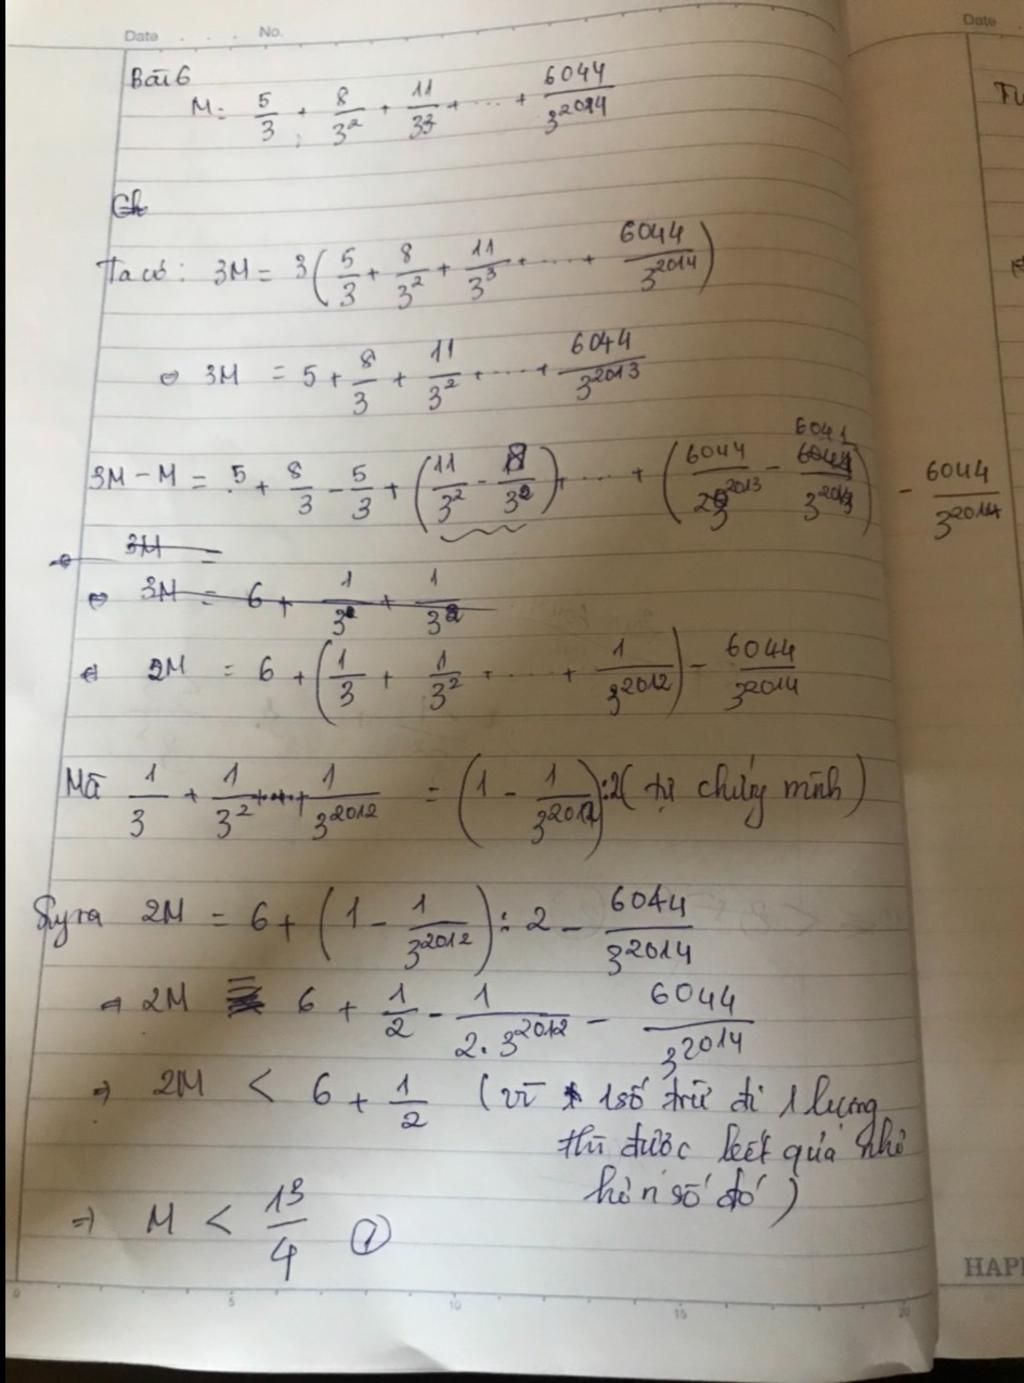 Date . . . No.
Date
Bài 6
M = 5/3 + 8/3² + 11/3³ + ... + 6044/3²⁰¹⁴
Ta có: 3M = 3(5/3 + 8/3² + 11/3³ + ... + 6044/3²⁰¹⁴)
⇔ 3M = 5 + 8/3 + 11/3² + ... + 6044/3²⁰¹³
3M - M = 5 + 8/3 - 5/3 + (11/3² - 8/3²) + ... + (6044/3²⁰¹³ - 6041/3²⁰¹³) - 6044/3²⁰¹⁴
3M =
⇔ 3M = 6 + 1/3 + 1/3²
⇔ 2M = 6 + (1/3 + 1/3² + ... + 1/3²⁰¹²) - 6044/3²⁰¹⁴
Mà 1/3 + 1/3² + ... + 1/3²⁰¹² = (1 - 1/3²⁰¹²):2 (tự chứng minh)
Suy ra 2M = 6 + (1 - 1/3²⁰¹²) : 2 - 6044/3²⁰¹⁴
⇒ 2M = 6 + 1/2 - 1/2.3²⁰¹² - 6044/3²⁰¹⁴
⇒ 2M < 6 + 1/2 (vì 1 số trừ đi 1 lượng
thì được kết quả nhỏ
hơn số đó)
⇒ M < 13/4 ①
HAPP
0 5 10 15 20